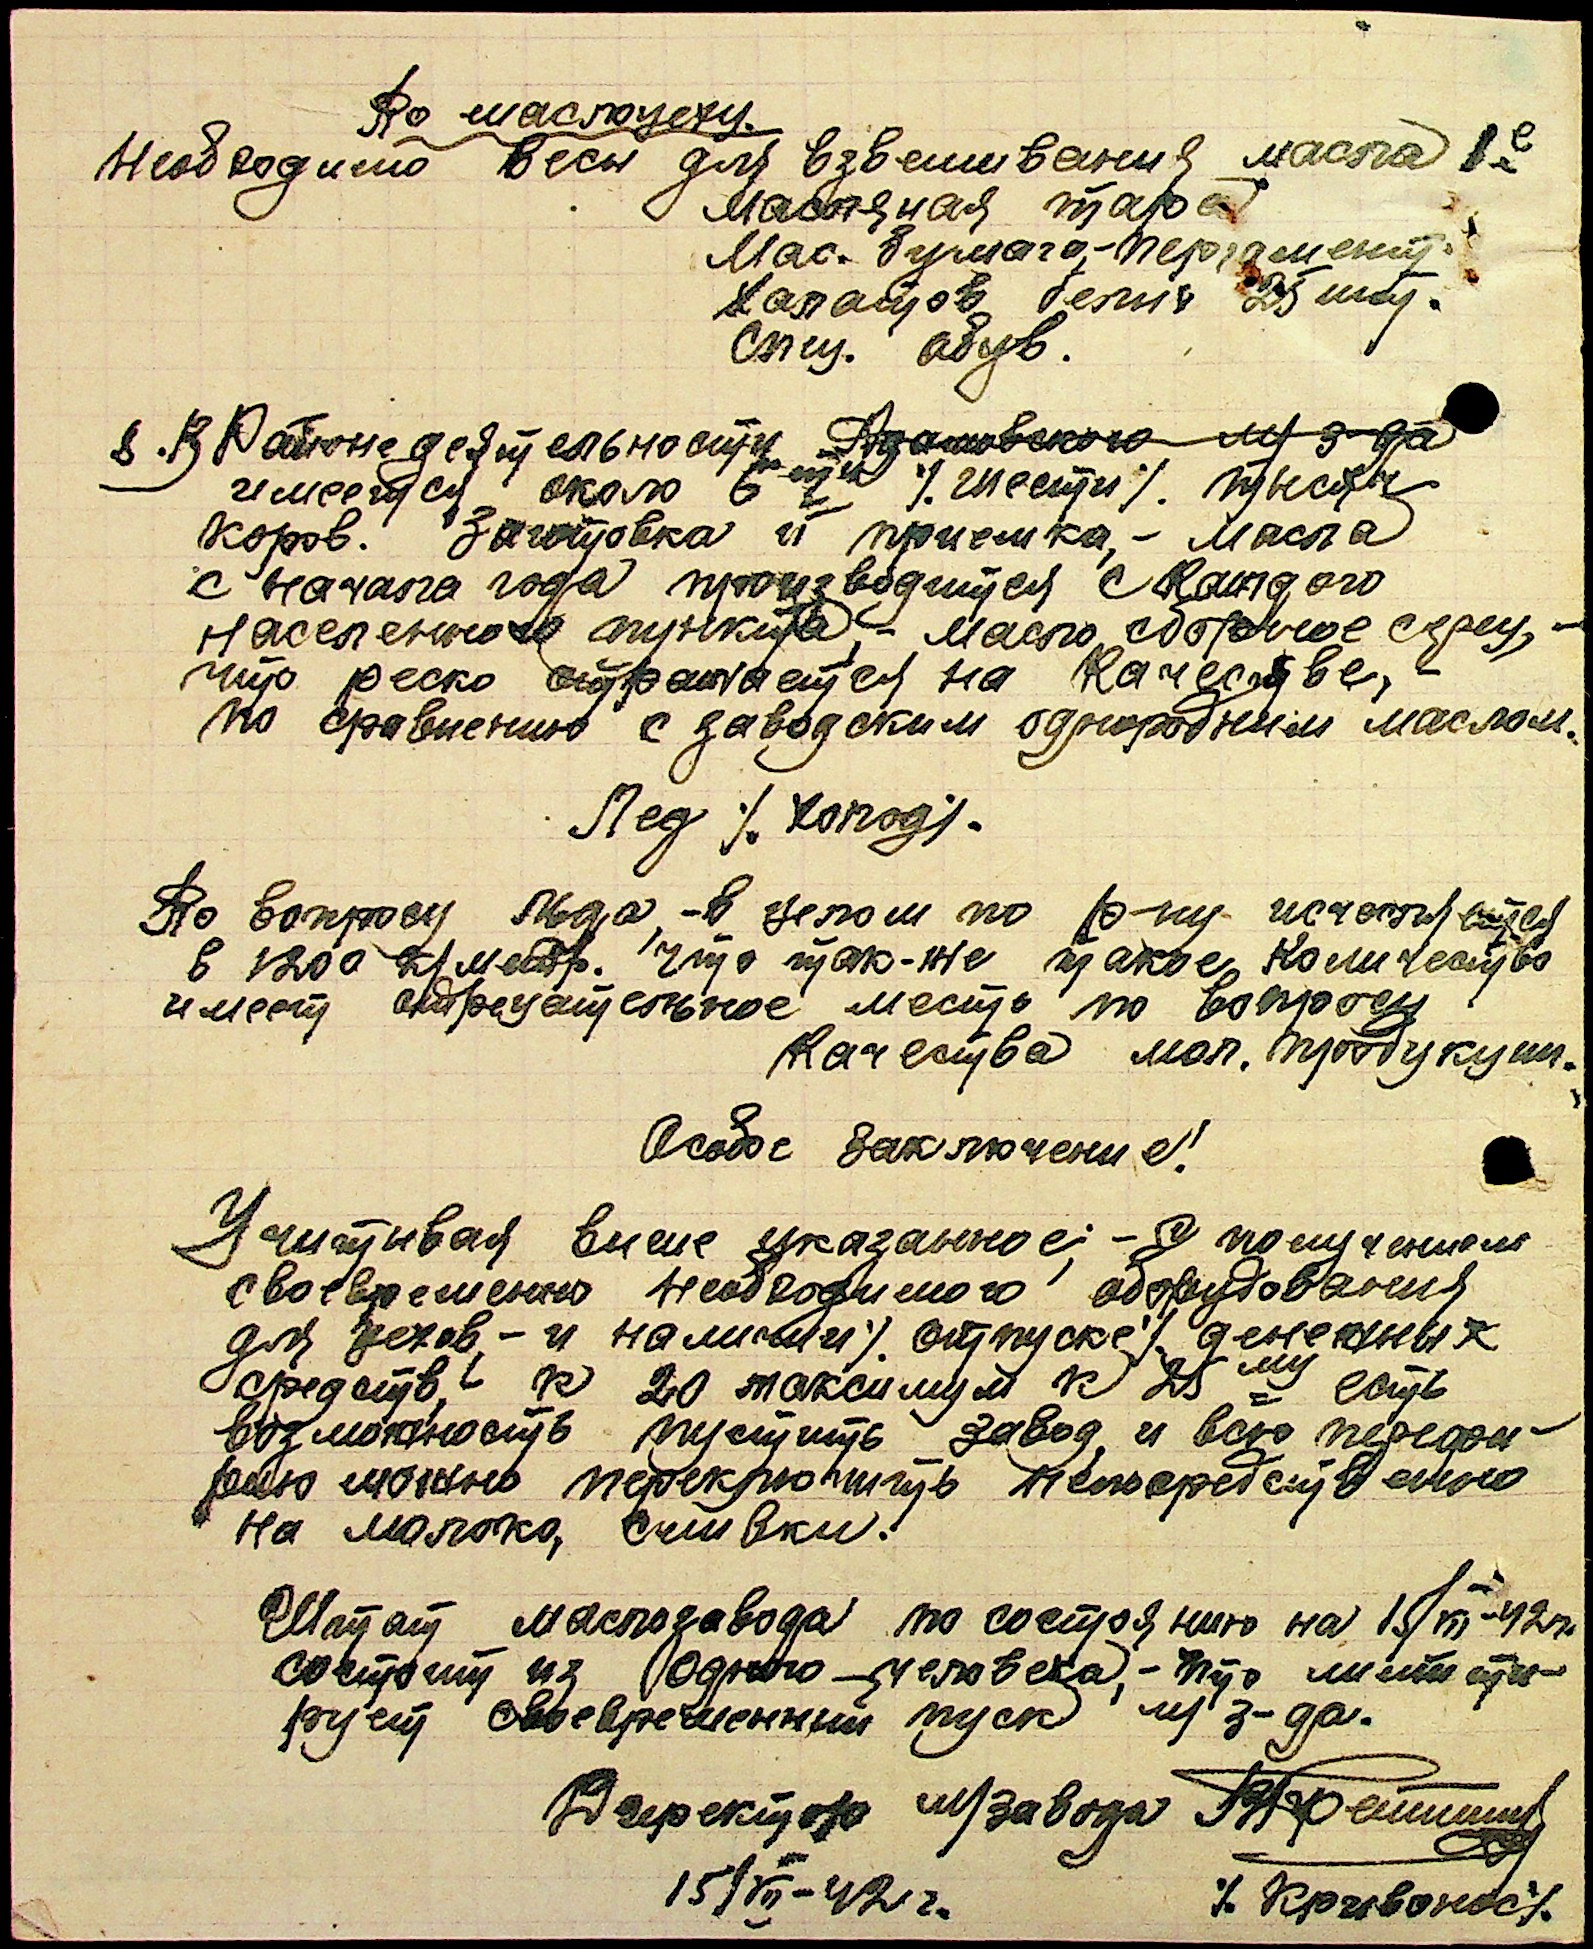 По маслоцеху.
Необходимо весы для взвешивания масла 1е
Масляная тара
Мас. бумага, - пергамент.
Халатов белых 25 шт.
Спец. обув.
8. В Районе деятельности Азатовского м/з-да
имеется около 6ти ./. шести ./. тысяч
коров. Заготовка и приемка, - масла
с начала года производится с каждого
населенного пункта, - масло сборное сразу, -
что реско отражается на качестве, -
по сравнению с заводским однородним маслом.
Лед ./. холод ./.
По вопросу льда, - в целом по р-ну исчесляется
в 1200 к/метр. что так-же такое количество
имеет отрецательное место по вопросу
качества мол. продукции.
Особое заключение!
Учитывая више указанное; - с получением
своевременно необходимого оборудования
для цехов, - и наличии ./. отпуске ./. денежных
средств, к 20 максимум к 25му есть
возможность пустить завод, и всю перефи-
рию можно переключить непосредственно
на молоко, сливки.
Штат маслозавода по состоянию на 15/VII-42 г.
состоит из одного человека, - что лимити-
рует своевременний пуск м/з-да.
Директор м/завода
15/VII-42 г. ./. Кривонос ./.